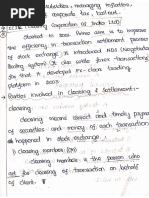 subsidies, managing institutes,
corporate tax, bailout.
(Clearing Corporation of India Ltd)
started in 2001. Prime aim is to improve
the efficiency in transaction settlement process
of stock exchange. It introduced NDS (Negotiated
Dealing System). It can also write forex transactions.
for that it developed fx-clear trading
platform in 2003.
Parties involved in clearing & settlement:-
clearing:
clearing means direct and timely payment
of securities and money of each transaction
happened in stock exchange.
1) clearing member: (CM)
clearing member is the person who
act for clearing of transaction on behalf
of client.